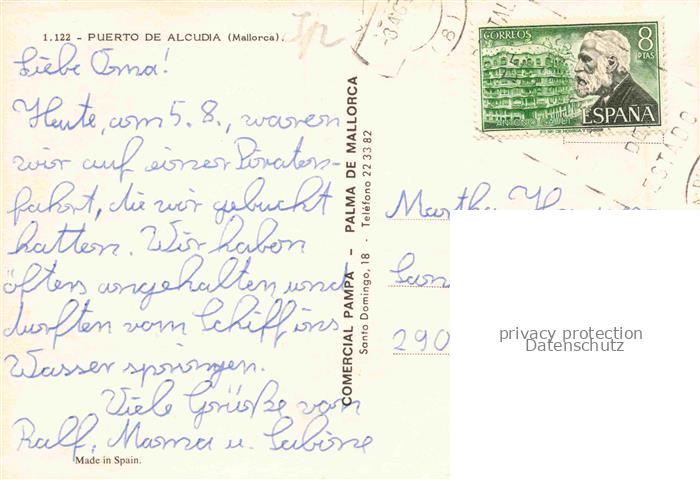 1.122 - PUERTO DE ALCUDIA (Mallorca).
Liebe Oma!
Heute, am 5.8., waren
wir auf einer Piraten-
fahrt, die wir gebucht
hatten. Wir haben
öfters angehalten und
durften vom Schiff ins
Wasser springen.
Viele Grüße von
Ralf, Mama u. Sabine
Made in Spain.
COMERCIAL PAMPA - PALMA DE MALLORCA
Santo Domingo, 18 - Teléfono 22 33 82
CORREOS
8
PTAS
ESPAÑA
ESTADO
Martha
290
privacy protection
Datenschutz